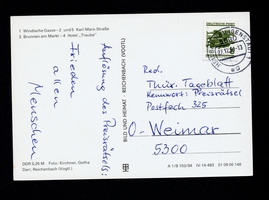 1 Windische Gasse - 2 und 5 Karl-Marx-Straße
3 Brunnen am Markt - 4 Hotel „Traube“
Auflösung des Preisrätsels:
Frieden
allen
Menschen
BILD UND HEIMAT REICHENBACH (VOGTL)
Red.
Thür. Tageblatt
Kennwort: Preisrätsel
Postfach 325
O-Weimar
5300
DDR 0,25 M Foto: Kirchner, Gotha
Darr, Reichenbach (Vogtl.)
A 1/B 703/84 IV-14-483 01 09 06 146